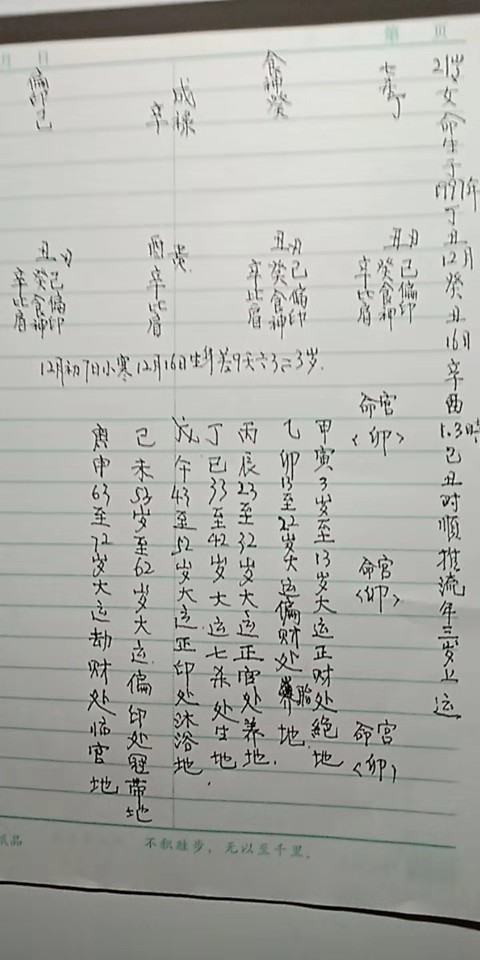 第 页
月 日
21岁女命生于1997年丁丑12月癸丑16日辛酉1.3时己丑时順推流年三岁上运
七杀丁
食神癸
辛
偏印己
丑
己偏印
癸食神
辛比肩
丑
己偏印
癸食神
辛比肩
酉
辛比肩
丑
己偏印
癸食神
辛比肩
12月初7日小寒12月16日生
命宫
<卯>
命宫
<卯>
命宫
<卯>
甲寅3岁至13岁大运正财处絕地
乙卯13至22岁大运偏财处胎地.
丙辰23至32岁大运正官处养地.
丁巳33至42岁大运七杀处生地.
戊午43至52岁大运正印处沐浴地
己未53岁至62岁大运偏印处冠带地
庚申63至72岁大运劫财处临官地
纸品
不积跬步，无以至千里。